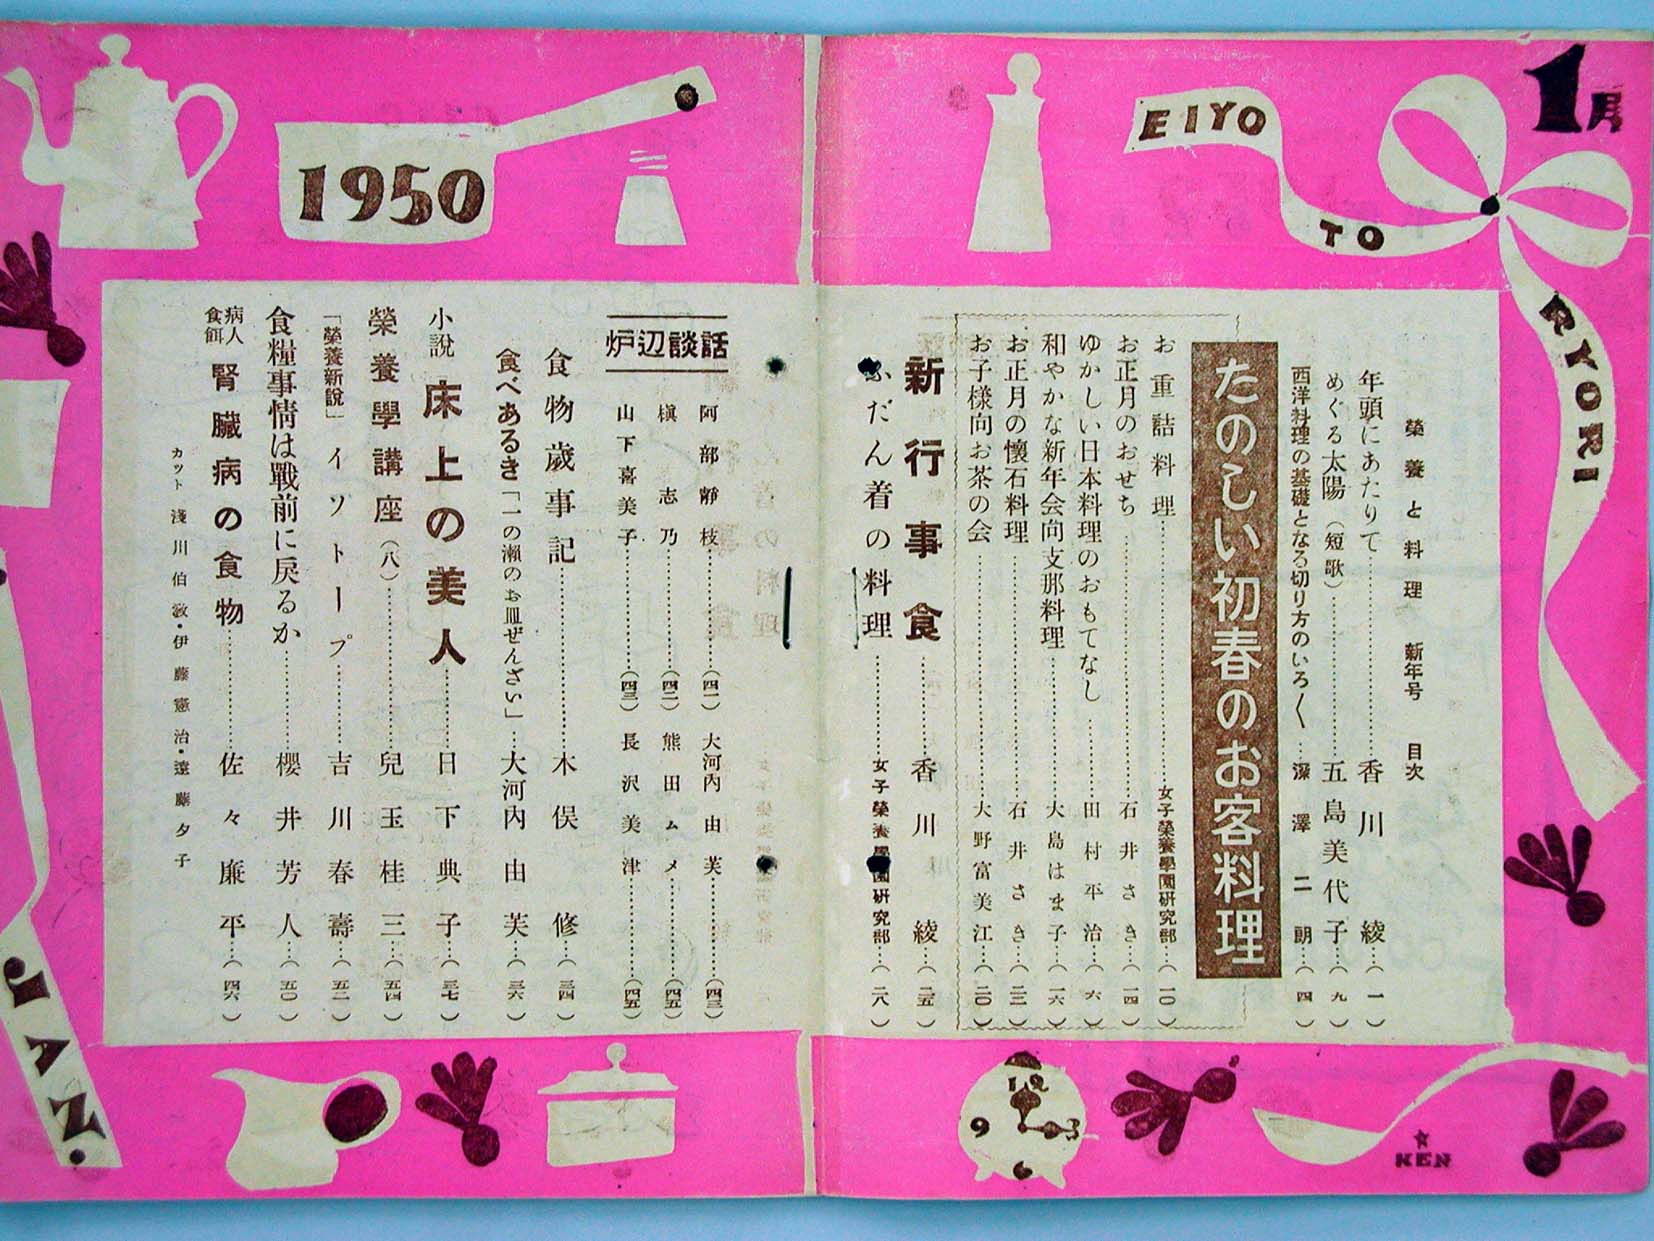 1月
EIYO
TO
RYORI
1950
JAN.
榮養と料理 新年号 目次
年頭にあたりて…香川綾…(一)
めぐる太陽(短歌)…五島美代子…(九)
西洋料理の基礎となる切り方のいろ〱…深澤二朗…(四)
たのしい初春のお客料理
お重詰料理…女子榮養學園研究部…(一〇)
お正月のおせち…石井さき…(一四)
ゆかしい日本料理のおもてなし…田村平治…(六)
和やかな新年会向支那料理…大島はま子…(一六)
お正月の懐石料理…石井さき…(二二)
お子様向お茶の会…大野富美江…(二〇)
新行事食…香川綾…(二五)
ふだん着の料理…女子榮養學園研究部…(二八)
炉辺談話
阿部靜枝…(四一)
大河內由芙…(四三)
槇志乃…(四二)
熊田ムメ…(四五)
山下喜美子…(四三)
長沢美津…(四五)
食物歲事記…木俣修…(三四)
食べあるき「一の瀬のお皿ぜんざい」…大河内由芙…(三六)
小説 床上の美人…日下典子…(三七)
榮養學講座(八)…兒玉桂三…(五四)
「榮養新說」イソトープ…吉川春壽…(五二)
食糧事情は戰前に戻るか…櫻井芳人…(五〇)
病人食餌 腎臓病の食物…佐々廉平…(四六)
カット 淺川伯敎・伊藤憲治・遠藤夕子
12
3
9
KEN